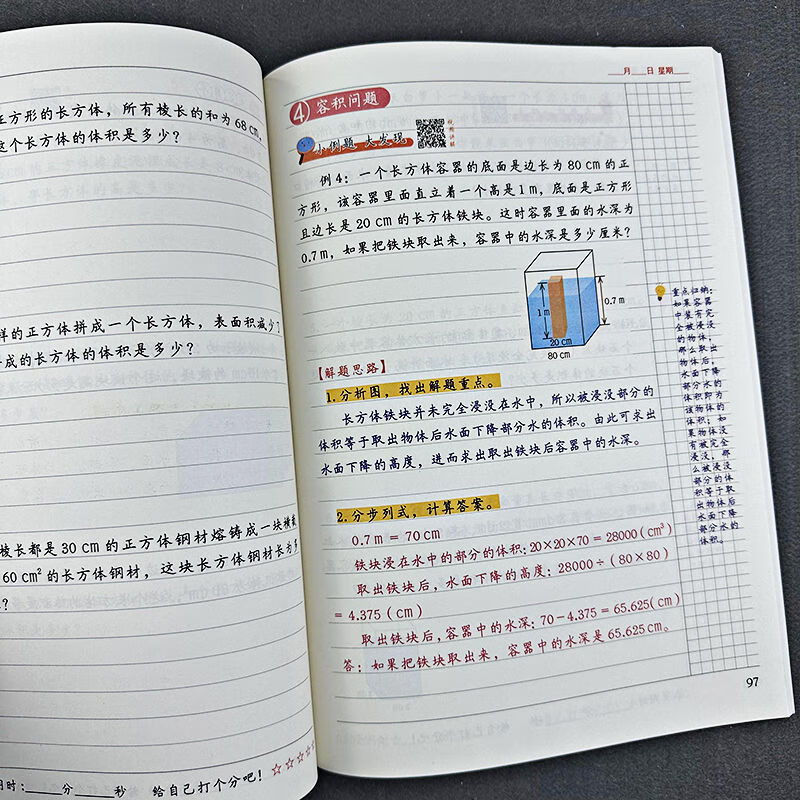 正方形的长方体，所有棱长的和为68 cm，
这个长方体的体积是多少？
样的正方体拼成一个长方体，表面积减少了
成的长方体的体积是多少？
棱长都是30 cm的正方体钢材熔铸成一块横截
60 cm²的长方体钢材，这块长方体钢材长为多
？
用时：____分____秒 给自己打个分吧！☆☆☆☆☆
____月____日 星期____
④ 容积问题
小例题 大发现
视频讲解
例4：一个长方体容器的底面是边长为80 cm的正
方形，该容器里面直立着一个高是1 m，底面是正方形
且边长是20 cm的长方体铁块。这时容器里面的水深为
0.7 m，如果把铁块取出来，容器中的水深是多少厘米？
1 m
0.7 m
20 cm
80 cm
【解题思路】
1.分析图，找出解题重点。
长方体铁块并未完全浸没在水中，所以被浸没部分的
体积等于取出物体后水面下降部分水的体积。由此可求出
水面下降的高度，进而求出取出铁块后容器中的水深。
2.分步列式，计算答案。
0.7 m = 70 cm
铁块浸在水中的部分的体积：20×20×70 = 28000（cm³）
取出铁块后，水面下降的高度：28000÷（80×80）
= 4.375（cm）
取出铁块后，容器中的水深：70－4.375 = 65.625（cm）
答：如果把铁块取出来，容器中的水深是65.625 cm。
重点归纳：
如果容器
中装有完
全被浸没
的物体，
那么取出
物体后，
水面下降
部分水的
体积即为
该物体的
体积；如
果物体没
有被完全
浸没，那
么被浸没
部分的体
积等于取
出物体后
水面下降
部分水的
体积。
97